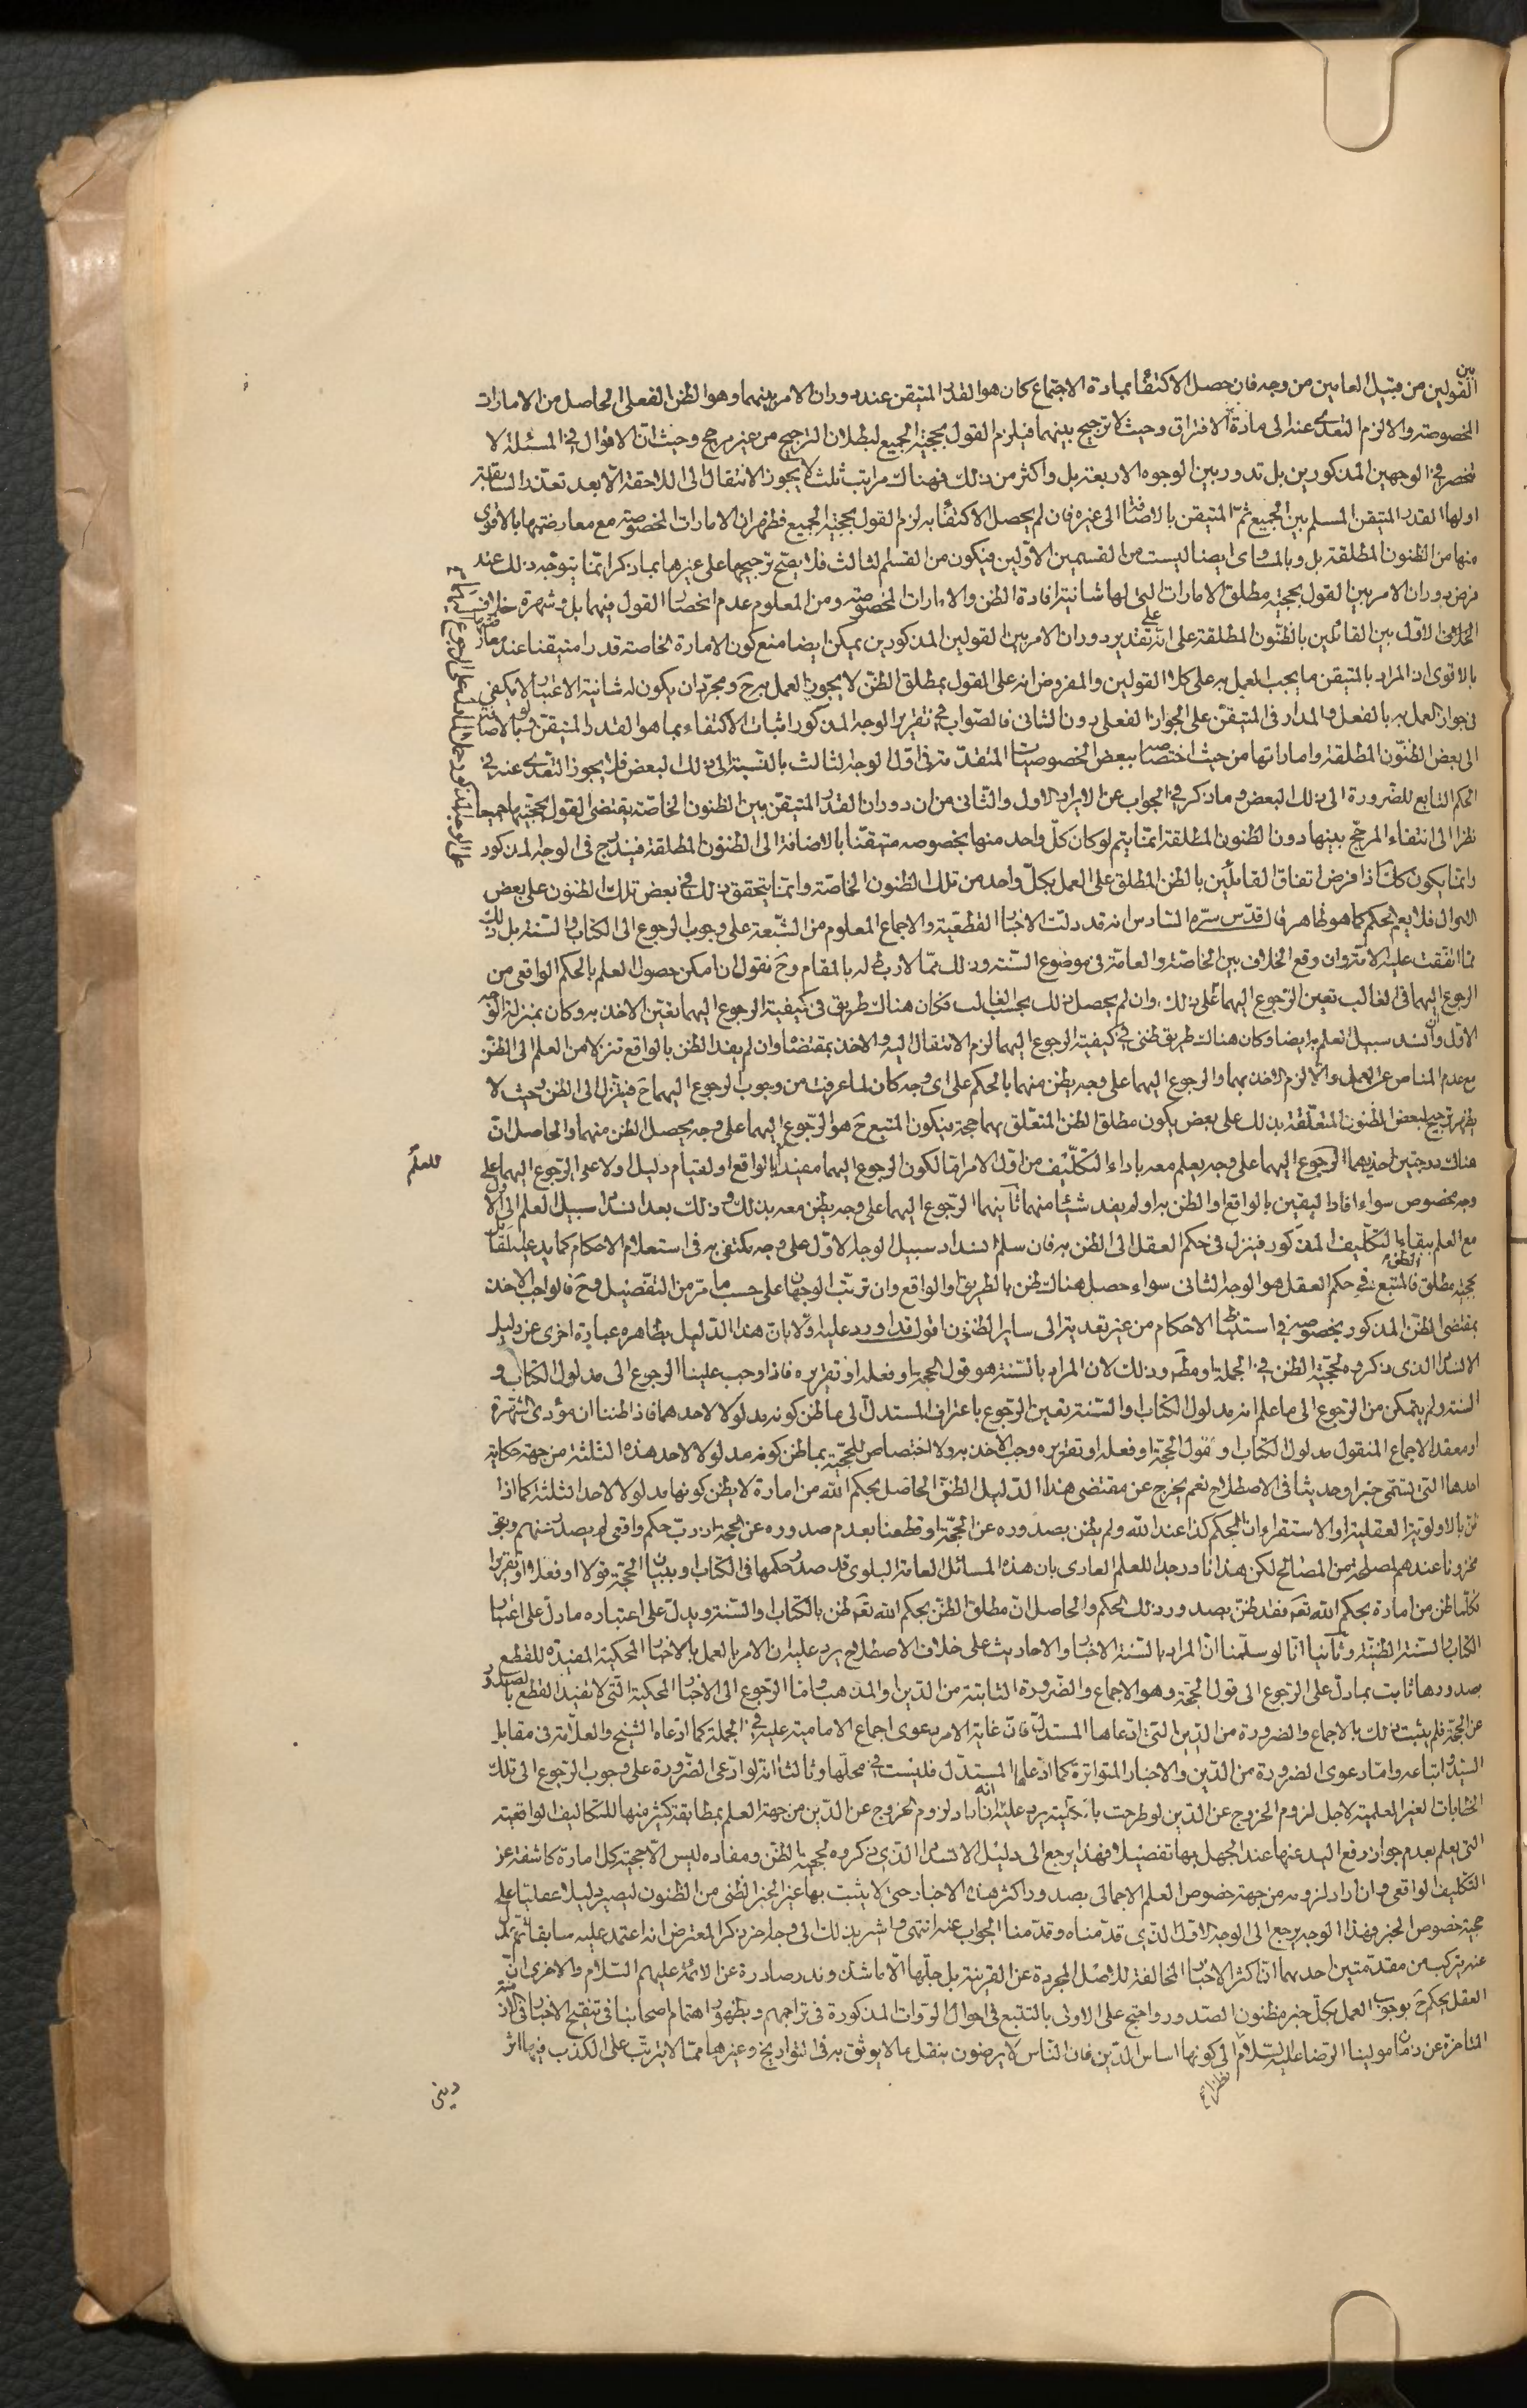 بين
القولين من قبيل العامين من وجه فان حصل الاكتفاء بمادة الاجتماع كان هو القدر المتيقن عند دوران الامر بينهما وهو الظن الفعلي الحاصل من الامارات
المخصوصة والا لزم التعدي عنه الى مادة الافتراق وحيث لا ترجيح بينهما فيلزم القول بحجية الجميع لبطلان الترجيح من غير مرجح وحيث ان الاقوال في المسئلة لا
تنحصر في الوجهين المذكورين بل تدور بين الوجوه الاربعة بل واكثر من ذلك فهناك مراتب ثلث لا يجوز الانتقال الى اللاحقة الا بعد تعذر السابقة
اولها القدر المتيقن المسلم بين الجميع ثم المتيقن بالاضافة الى غيره فان لم يحصل الاكتفاء به لزم القول بحجية الجميع فظهر ان الامارات المخصوصة مع معارضتها بالاقوى
منها من الظنون المطلقة بل وبالمساوى ايضا ليست من القسمين الاولين فيكون من القسم الثالث فلا يصح ترجيحها على غيرها بما ذكر انما يتوجه ذلك عند
فرض دوران الامر بين القول بحجية مطلق الامارات التى لها شانية افادة الظن والامارات المخصوصة ومن المعلوم عدم انحصار القول فيهما بل وشهرة خلافه
الخلاف الاول بين القائلين بالظنون المطلقة على انه على تقدير دوران الامر بين القولين المذكورين يمكن ايضا منع كون الامارة الخاصة قدرا متيقنا عند معارضتها
بالاقوى اذ المراد بالمتيقن ما يجب العمل به على كلا القولين والمفروض انه على القول بمطلق الظن لا يجوز العمل به ح ومجرد ان يكون له شانية الاعتبار لا يكفى
فى جواز العمل به بالفعل والمدار فى المتيقن على الجواز الفعلى دون الشانى فالصواب فى تقرير الوجه المذكور اثبات الاكتفاء بما هو القدر المتيقن ولو بالاضافة
الى بعض الظنون المطلقة واماراتها من حيث اختصاصه ببعض الخصوصيات المتقدمة فى اول الوجه الثالث بالنسبة الى ذلك البعض فلا يجوز التعدى عنه في
الحكم التابع للضرورة الى ذلك البعض وما ذكر في الجواب عن الايراد الاول والثانى من ان دوران القدر المتيقن بين الظنون الخاصة يقتضى القول بحجيتها جميعا
نظرا الى انتفاء المرجح بينها دون الظنون المطلقة انما يتم لو كان كل واحد منها بخصوصه متيقنا بالاضافة الى الظنون المطلقة فيندرج فى الوجه المذكور
وانما يكون كك اذا فرض اتفاق القائلين بالظن المطلق على العمل بكل واحد من تلك الظنون الخاصة وانما يتحقق ذلك في بعض تلك الظنون على بعض
الاحوال فلا يعم الحكم كما هو ظاهر قال قدس سره السادس انه قد دلت الاخبار القطعية والاجماع المعلوم من الشيعة على وجوب الرجوع الى الكتاب والسنة بل ذلك
مما اتفقت عليه الامة وان وقع الخلاف بين الخاصة والعامة فى موضوع السنة وذلك مما لا ربط له بالمقام وح نقول ان امكن حصول العلم بالحكم الواقعى من
الرجوع اليهما فى الغالب تعين الرجوع اليهما على ذلك وان لم يحصل ذلك بحسب الغالب فكان هناك طريق فى كيفية الرجوع اليهما تعين الاخذ به وكان بمنزلة الوجه
الاول وان انسد سبيل العلم به ايضا وكان هناك طريق ظنى في كيفية الرجوع اليهما لزم الانتقال اليه والاخذ بمقتضاه وان لم يفد الظن بالواقع تنزلا من العلم الى الظن
مع عدم المناص عن العمل والا لزم الاخذ بهما والرجوع اليهما على وجه يظن منهما بالحكم على اى وجه كان لما عرفت من وجوب الرجوع اليهما ح فينزل الى الظن وحيث لا
يظهر ترجيح لبعض الظنون المتعلقة بذلك على بعض يكون مطلق الظن المتعلق بهما حجة فيكون المتبع ح هو الرجوع اليهما على وجه يحصل الظن منهما والحاصل ان
هناك درجتين احديهما الرجوع اليهما على وجه يعلم معه باداء التكليف من اول الامر اما لكون الرجوع اليهما مفيدا للعلم بالواقع او لقيام دليل اولا على الرجوع اليهما على
وجه مخصوص سواء افاد اليقين بالواقع او الظن به اولم يفد شيئا منهما ثانيهما الرجوع اليهما على وجه يظن معه بذلك وذلك بعد انسداد سبيل العلم الى الاول
مع العلم ببقاء التكليف المذكور فينزل فى حكم العقل الى الظن به فان سلم انسداد سبيل الوجه الاول على وجه مكتفى به فى استعلام الاحكام كما يدعيه القائل
بحجية مطلق الظن فالمتبع في حكم العقل هو الوجه الثانى سواء حصل هناك ظن بالطريق او الواقع وان ترتب الوجهان على حسب ما مر من التفصيل وح فالواجب الاخذ
بمقتضى الظن المذكور بخصوصه في استنباط الاحكام من غير تعدية الى ساير الظنون اقول قد اورد عليه اولا بان هذا الدليل بظاهره عبارة اخرى عن دليل
الانسداد الذى ذكروه لحجية الظن في الجملة او مطلقا وذلك لان المراد بالسنة هو قول الحجة او فعله او تقريره فاذا وجب علينا الرجوع الى مدلول الكتاب و
السنة ولم يتمكن من الرجوع الى ما علم انه مدلول الكتاب والسنة تعين الرجوع باعتراف المستدل الى ما ظن كونه مدلولا لاحدهما فاذا ظننا ان مؤدى الشهرة
او معقد الاجماع المنقول مدلول الكتاب او لقول الحجة او فعله او تقريره وجب الاخذ به ولا اختصاص للحجية بما ظن كونه مدلولا لاحد هذه الثلثة من جهة حكاية
احدها التى تسمى خبرا وحديثا فى الاصطلاح نعم يخرج عن مقتضى هذا الدليل الظن الحاصل بحكم الله من امارة لا يظن كونها مدلولا لاحد الثلثة كما اذا
ظن بالاولوية العقلية او الاستقراء ان الحكم كذا عند الله ولم يظن بصدوره عن الحجة او قطعنا بعدم صدوره عن الحجة اذ رب حكم واقعى لم يصدر عنهم وبقى
مخزونا عندهم لمصلحة من المصالح لكن هذا نادر جدا للعلم العادى بان هذه المسائل العامة البلوى قد صدر حكمها فى الكتاب او ببيان الحجة قولا او فعلا او تقريرا
فكلما ظن من امارة بحكم الله تعالى فقد ظن بصدور ذلك الحكم والحاصل ان مطلق الظن بحكم الله تعالى ظن بالكتاب والسنة ويدل على اعتباره ما دل على اعتبار
الكتاب والسنة الظنية وثانيا انا لو سلمنا ان المراد بالسنة الاخبار والاحاديث على خلاف الاصطلاح يرد عليه ان الامر بالعمل بالاخبار المحكية المفيدة للقطع
بصدورها ثابت بما دل على الرجوع الى قول الحجة وهو الاجماع والضرورة الثابتة من الدين او المذهب واما الرجوع الى الاخبار المحكية التى لا تفيد القطع بالصدور
عن الحجة فلم يثبت ذلك بالاجماع والضرورة من الدين التى ادعاها المستدل فان غاية الامر دعوى اجماع الامامية عليه في الجملة كما ادعاه الشيخ والعلامة فى مقابل
السيد واتباعه واما دعوى الضرورة من الدين والاخبار المتواترة كما ادعاها المستدل فليست في محلها وثالثا انه لو ادعى الضرورة على وجوب الرجوع الى تلك
الحكايات الغير العلمية لاجل لزوم الخروج عن الدين لو طرحت بالكلية يرد عليه انه ان اراد لزوم الخروج عن الدين من جهة العلم بمطابقة كثير منها للتكاليف الواقعية
التى يعلم بعدم جواز رفع اليد عنها عند الجهل بها تفصيلا فهذا يرجع الى دليل الانسداد الذى ذكروه لحجية الظن ومفاده ليس الا حجية كل امارة كاشفة عن
التكليف الواقعى وان اراد لزومه من جهة خصوص العلم الاجمالى بصدور اكثر هذه الاخبار حتى لا يثبت بها غير الخبر الظنى من الظنون ليصير دليلا عقليا على
حجية خصوص الخبر فهذا الوجه يرجع الى الوجه الاول الذى قدمناه وقدمنا الجواب عنه انتهى واشير بذلك الى وجه اخر ذكر المعترض انه اعتمد عليه سابقا ثم عدل
عنه يتركب من مقدمتين احدهما ان اكثر الاخبار المخالفة للاصل المجردة عن القرينة بل جلها الا ما شذ وندر صادرة عن الائمة عليهم السلام والاخرى ان
العقل يحكم ح بوجوب العمل بكل خبر مظنون الصدور واحتج على الاولى بالتتبع فى احوال الرواة المذكورة فى تراجمهم وبظهور اهتمام اصحابنا فى تنقيح الاخبار فى الازمنة
المتاخرة عن زمان مولينا الرضا عليه السلام نظرا الى كونها اساس الدين فان الناس لا يرضون بنقل ما لا يوثق به فى التواريخ وغيرها مما لا يترتب على الكذب فيها اثر
دينى